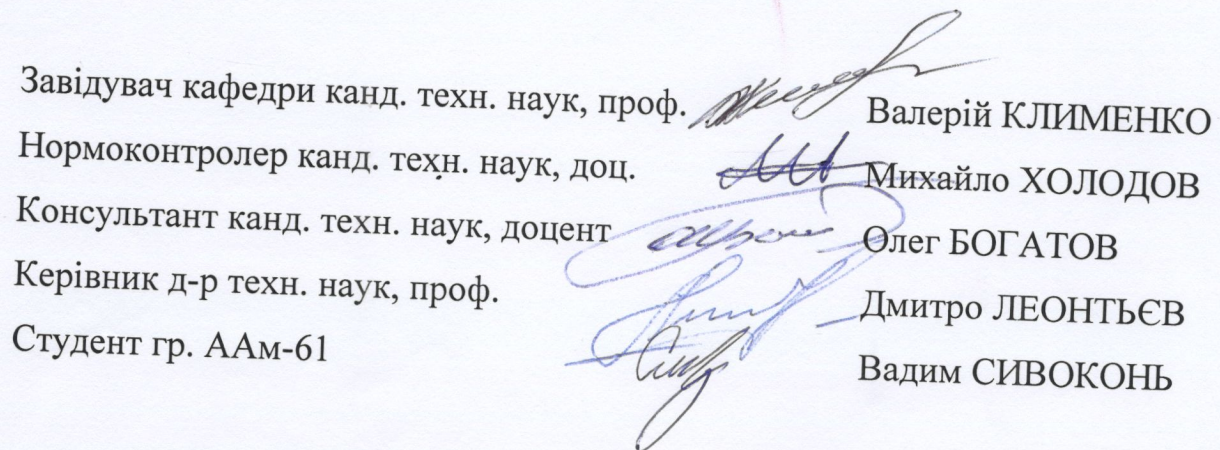 Завідувач кафедри канд. техн. наук, проф. Валерій КЛИМЕНКО
Нормоконтролер канд. техн. наук, доц. Михайло ХОЛОДОВ
Консультант канд. техн. наук, доцент Олег БОГАТОВ
Керівник д-р техн. наук, проф. Дмитро ЛЕОНТЬЄВ
Студент гр. ААм-61 Вадим СИВОКОНЬ